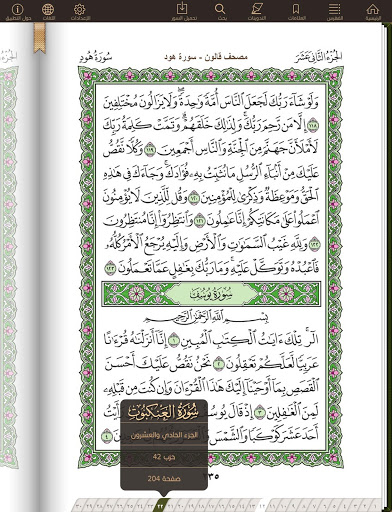 الرئيسية الفهرس العلامات التدوينات بحث تحميل السور الإعدادات اللغات حول التطبيق
الجزء الثاني عشر
مصحف قالون - سورة هود
سورة هود
وَلَوْ شَآءَ رَبُّكَ لَجَعَلَ النَّاسَ أُمَّةً وَٰحِدَةً وَلَا يَزَالُونَ مُخْتَلِفِينَ
١١٨ إِلَّا مَن رَّحِمَ رَبُّكَ وَلِذَٰلِكَ خَلَقَهُمْ وَتَمَّتْ كَلِمَةُ رَبِّكَ
لَأَمْلَأَنَّ جَهَنَّمَ مِنَ الْجِنَّةِ وَالنَّاسِ أَجْمَعِينَ ١١٩ وَكُلًّا نَّقُصُّ
عَلَيْكَ مِنْ أَنۢبَآءِ الرُّسُلِ مَا نُثَبِّتُ بِهِۦ فُؤَادَكَ وَجَآءَكَ فِي هَٰذِهِ
الْحَقُّ وَمَوْعِظَةٌ وَذِكْرَىٰ لِلْمُؤْمِنِينَ ١٢٠ وَقُل لِّلَّذِينَ لَا يُؤْمِنُونَ
اعْمَلُوا عَلَىٰ مَكَانَتِكُمْ إِنَّا عَٰمِلُونَ ١٢١ وَانتَظِرُوا إِنَّا مُنتَظِرُونَ
١٢٢ وَلِلَّهِ غَيْبُ السَّمَٰوَٰتِ وَالْأَرْضِ وَإِلَيْهِ يُرْجَعُ الْأَمْرُ كُلُّهُ
فَاعْبُدْهُ وَتَوَكَّلْ عَلَيْهِ وَمَا رَبُّكَ بِغَٰفِلٍ عَمَّا تَعْمَلُونَ ١٢٣
سورة يوسف
بِسْمِ اللَّهِ الرَّحْمَٰنِ الرَّحِيمِ
الٓر تِلْكَ ءَايَٰتُ الْكِتَٰبِ الْمُبِينِ ١ إِنَّآ أَنزَلْنَٰهُ قُرْءَٰنًا
عَرَبِيًّا لَّعَلَّكُمْ تَعْقِلُونَ ٢ نَحْنُ نَقُصُّ عَلَيْكَ أَحْسَنَ
الْقَصَصِ بِمَآ أَوْحَيْنَآ إِلَيْكَ هَٰذَا الْقُرْءَانَ وَإِن كُنتَ مِن قَبْلِهِۦ
لَمِنَ الْغَٰفِلِينَ ٣ إِذْ قَالَ يُوسُفُ
أَحَدَ عَشَرَ كَوْكَبًا وَالشَّمْسَ ٤
سورة العنكبوت
الجزء الحادي والعشرون
حزب 42
صفحة 204
٢٣٥